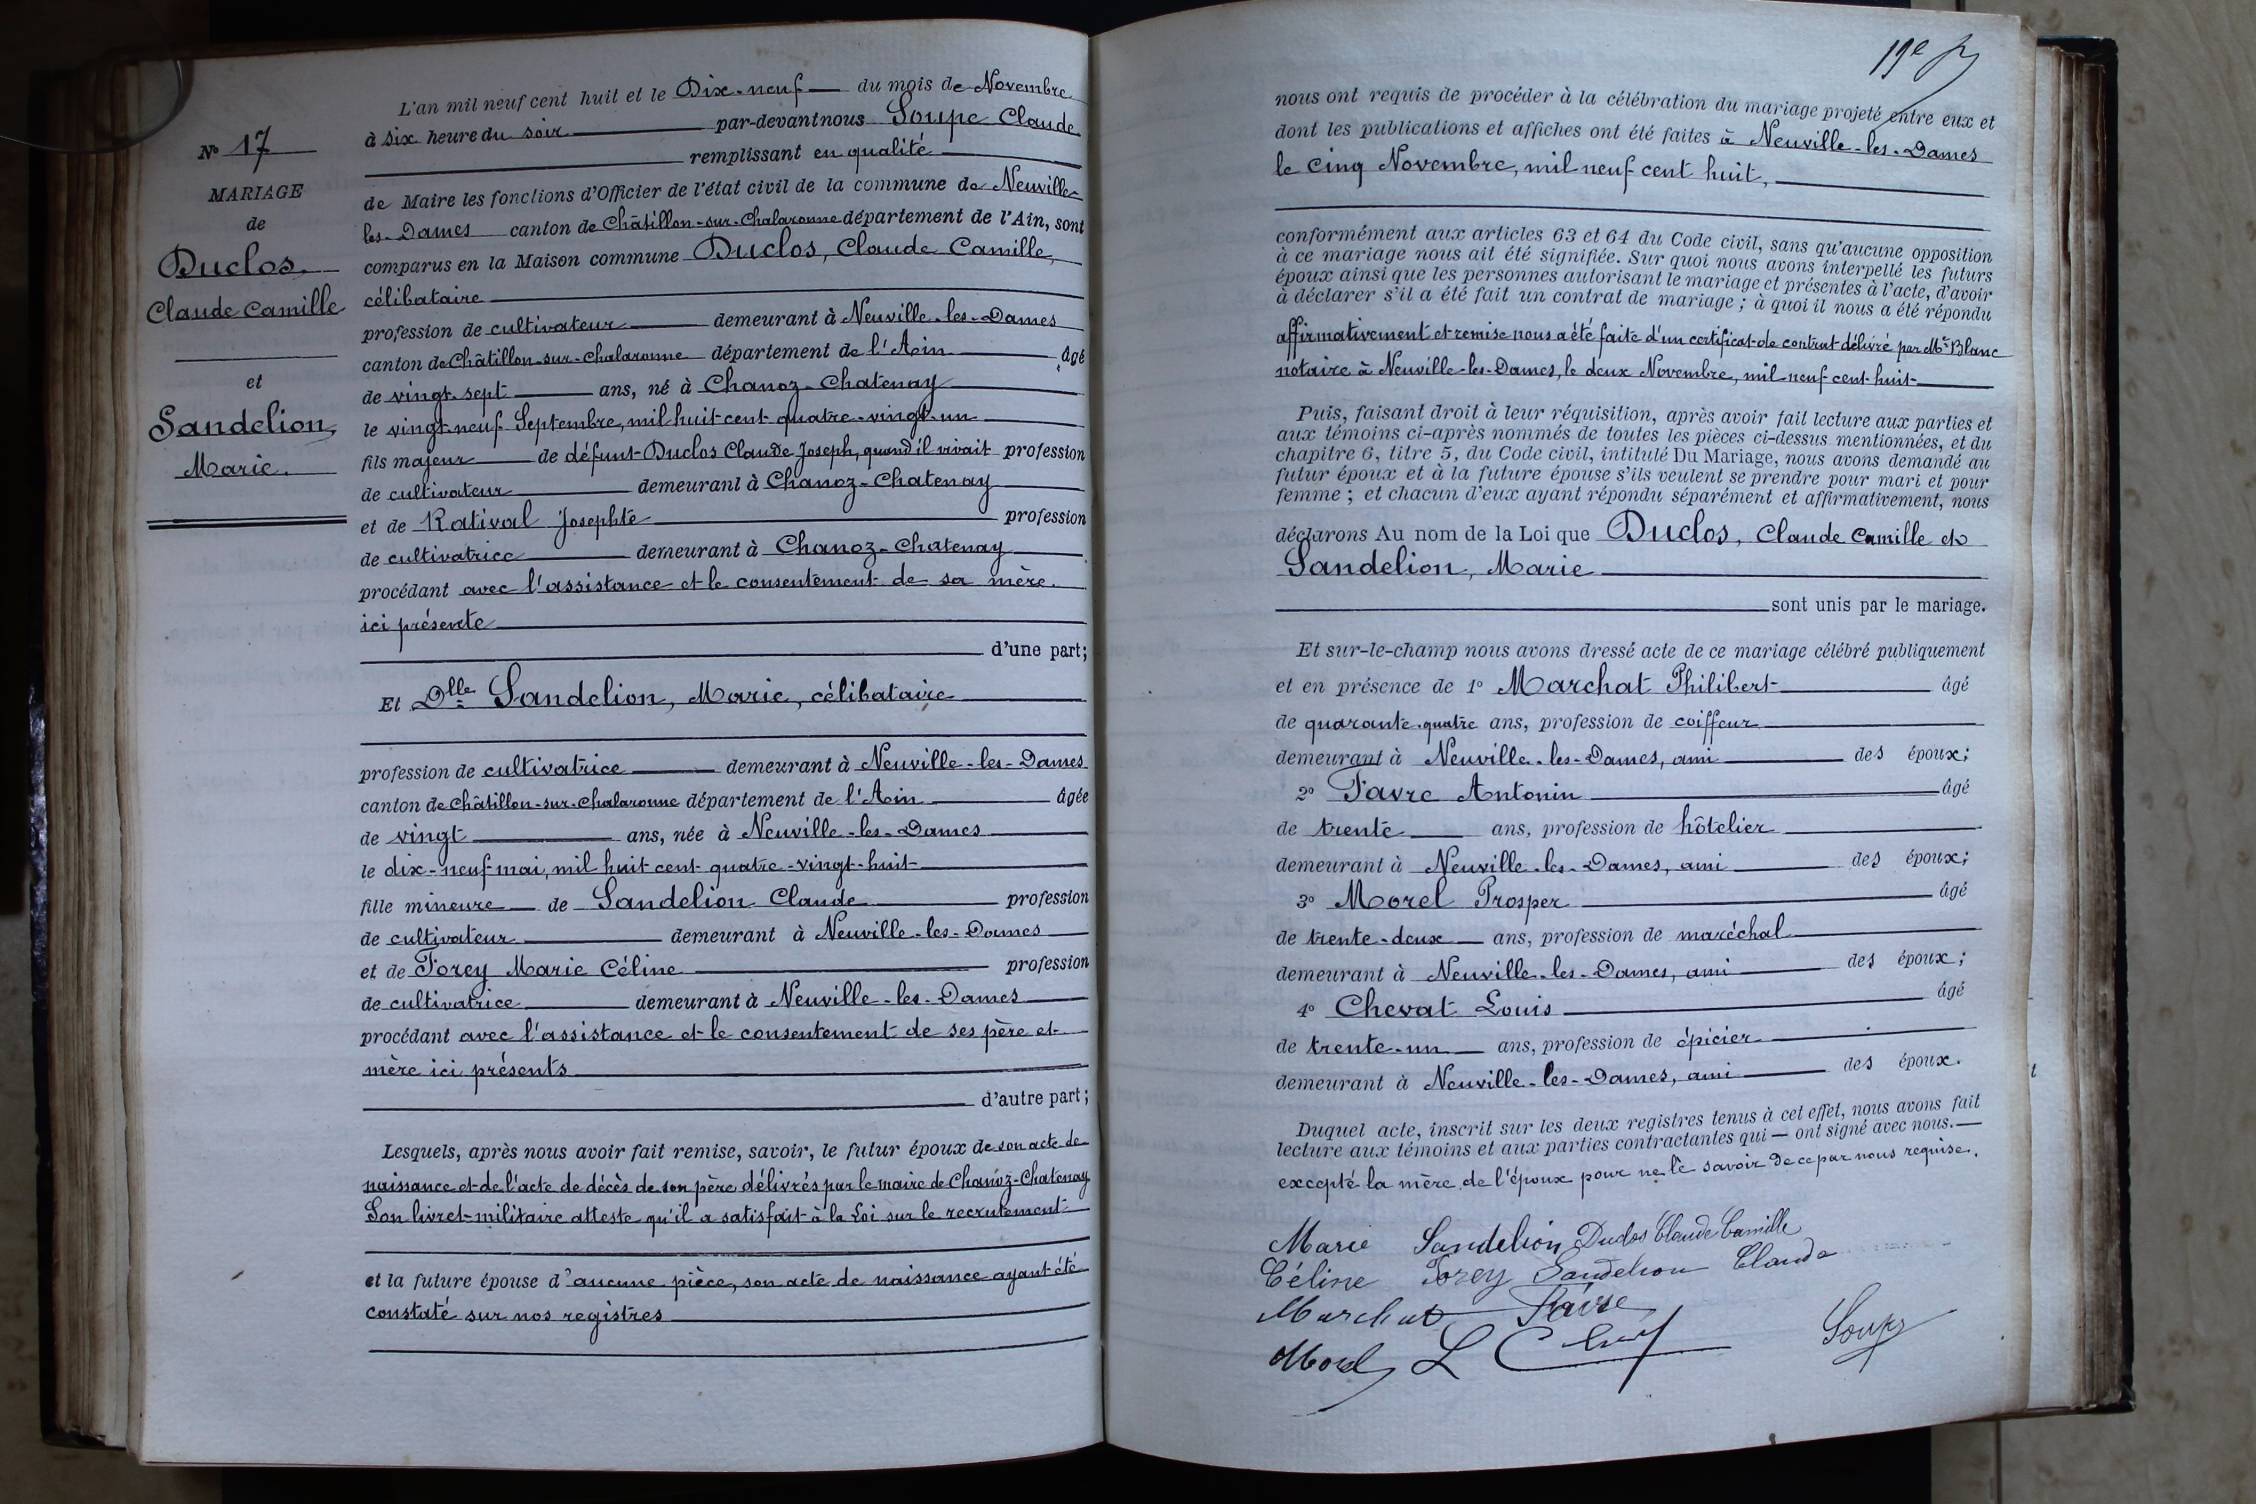 L'an mil neuf cent huit et le Dix-neuf du mois de Novembre
à six heure du soir par-devant nous Soupe Claude
remplissant en qualité
de Maire les fonctions d'Officier de l'état civil de la commune de Neuville-
les-Dames canton de Châtillon-sur-Chalaronne département de l'Ain, sont
comparus en la Maison commune Duclos, Claude Camille,
célibataire
profession de cultivateur demeurant à Neuville-les-Dames
canton de Châtillon-sur-Chalaronne département de l'Ain âgé
de vingt-sept ans, né à Chanoz-Chatenay
le vingt-neuf Septembre, mil huit cent quatre-vingt-un
fils majeur de défunt Duclos Claude Joseph, quand il vivait profession
de cultivateur demeurant à Chanoz-Chatenay
et de Ratival Josephte profession
de cultivatrice demeurant à Chanoz-Chatenay
procédant avec l'assistance et le consentement de sa mère
ici présente
d'une part;
Et Dlle Sandelion, Marie, célibataire
profession de cultivatrice demeurant à Neuville-les-Dames
canton de Châtillon-sur-Chalaronne département de l'Ain âgée
de vingt ans, née à Neuville-les-Dames
le dix-neuf mai, mil huit cent quatre-vingt-huit
fille mineure de Sandelion Claude profession
de cultivateur demeurant à Neuville-les-Dames
et de Forey Marie Céline profession
de cultivatrice demeurant à Neuville-les-Dames
procédant avec l'assistance et le consentement de ses père et
mère ici présents
d'autre part;
Lesquels, après nous avoir fait remise, savoir, le futur époux de son acte de
naissance et de l'acte de décès de son père délivrés par le maire de Chanoz-Chatenay
Son livret militaire atteste qu'il a satisfait à la Loi sur le recrutement
et la future épouse d'aucune pièce, son acte de naissance ayant été
constaté sur nos registres
No 17
MARIAGE
de
Duclos
Claude Camille
et
Sandelion,
Marie.
19e
nous ont requis de procéder à la célébration du mariage projeté entre eux et
dont les publications et affiches ont été faites à Neuville-les-Dames
le cinq Novembre, mil neuf cent huit,
conformément aux articles 63 et 64 du Code civil, sans qu'aucune opposition
à ce mariage nous ait été signifiée. Sur quoi nous avons interpellé les futurs
époux ainsi que les personnes autorisant le mariage et présentes à l'acte, d'avoir
à déclarer s'il a été fait un contrat de mariage; à quoi il nous a été répondu
affirmativement et remise nous a été faite d'un certificat de contrat délivré par Me Blanc
notaire à Neuville-les-Dames, le deux Novembre, mil neuf cent huit
Puis, faisant droit à leur réquisition, après avoir fait lecture aux parties et
aux témoins ci-après nommés de toutes les pièces ci-dessus mentionnées, et du
chapitre 6, titre 5, du Code civil, intitulé Du Mariage, nous avons demandé au
futur époux et à la future épouse s'ils veulent se prendre pour mari et pour
femme; et chacun d'eux ayant répondu séparément et affirmativement, nous
déclarons Au nom de la Loi que Duclos, Claude Camille et
Sandelion, Marie
sont unis par le mariage.
Et sur-le-champ nous avons dressé acte de ce mariage célébré publiquement
et en présence de 1o Marchat Philibert âgé
de quarante-quatre ans, profession de coiffeur
demeurant à Neuville-les-Dames, ami des époux;
2o Favre Antonin âgé
de trente ans, profession de hôtelier
demeurant à Neuville-les-Dames, ami des époux;
3o Morel Prosper âgé
de trente-deux ans, profession de maréchal
demeurant à Neuville-les-Dames, ami des époux;
4o Chevat Louis âgé
de trente-un ans, profession de épicier
demeurant à Neuville-les-Dames, ami des époux.
Duquel acte, inscrit sur les deux registres tenus à cet effet, nous avons fait
lecture aux témoins et aux parties contractantes qui — ont signé avec nous.—
excepté la mère de l'époux pour ne le savoir de ce par nous requise.
Marie Sandelion Duclos Claude Camille
Céline Forey Sandelion Claude
Marchat Favre
Morel L Soupe